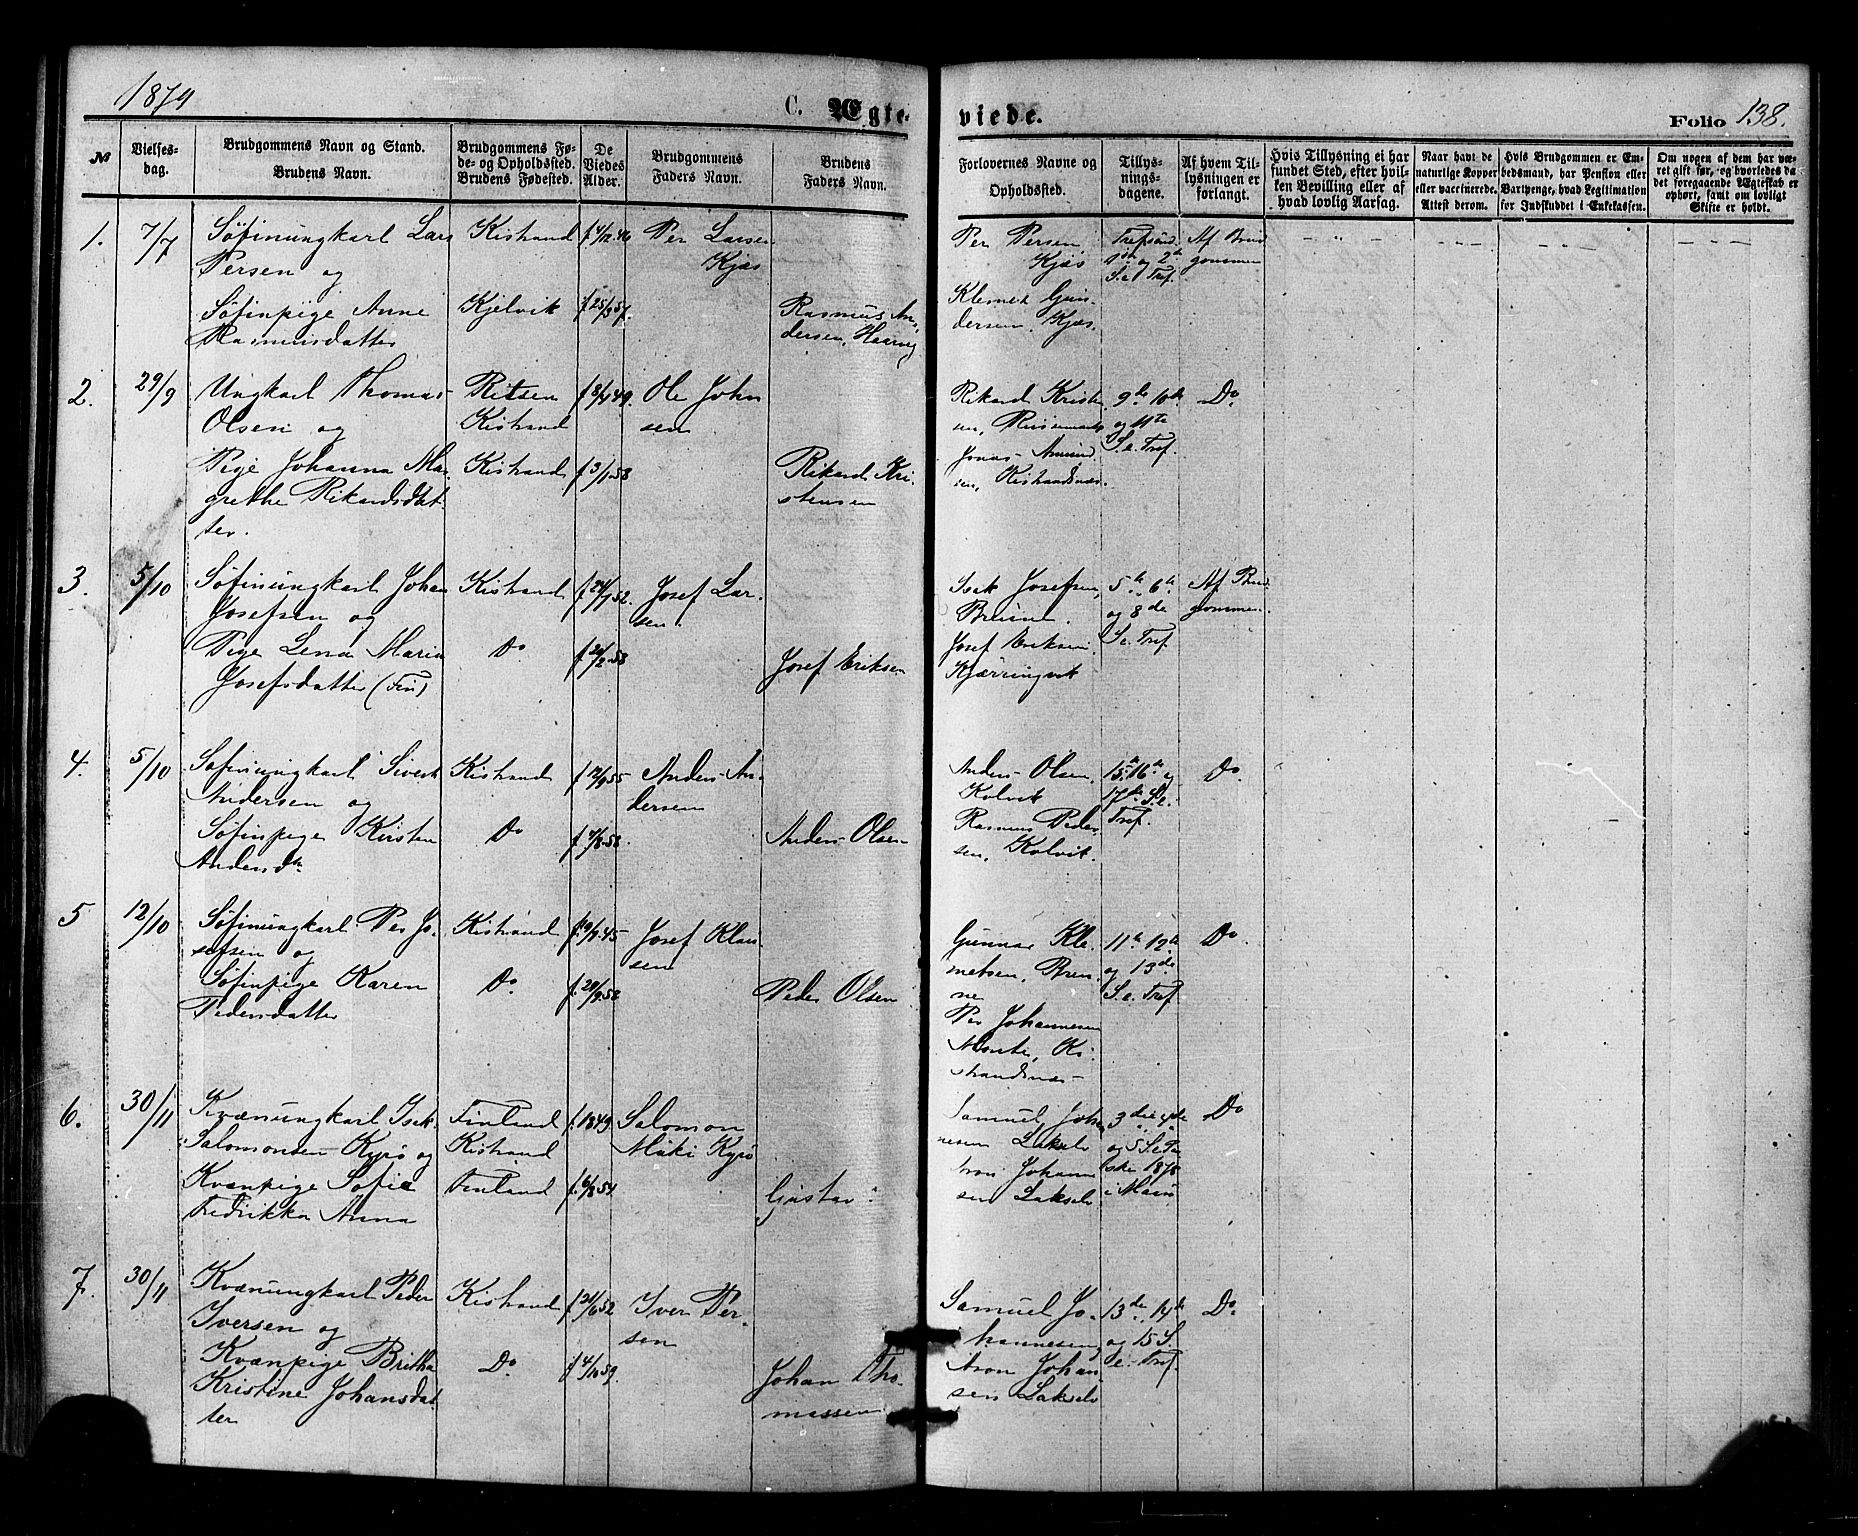 1879
C. Ægte-
viede.
Folio 138.
№
Vielses-
dag.
Brudgommens Navn og Stand.
Brudens Navn.
Brudgommens Fø-
de- og Opholdssted.
Brudens Fødested.
De
Viedes
Alder.
Brudgommens
Faders Navn.
Brudens
Faders Navn.
Forlovernes Navne og
Opholdssted.
Tillys-
nings-
dagene.
Af hvem Til-
lysningen er
forlangt.
Hvis Tillysning ei har
fundet Sted, efter hvil-
ken Bevilling eller af
hvad lovlig Aarsag.
Naar havt de
naturlige Kopper
eller vaccinerede.
Attest derom.
Hvis Brudgommen er Em-
bedsmand, har Pension eller
Vartpenge, hvad Legitimation
for Indskuddet i Enkekassen.
Om nogen af dem har væ-
ret gift før, og hvorledes da
det foregaaende Ægteskab er
ophørt, samt om lovligt
Skifte er holdt.
1.
7/7
Søfinungkarl Lars
Persen og
Søfinpige Anne
Rasmusdatter
Kistrand
Kjelvik
f 4/12.46
f 25/3.57.
Per Larsen
Kjæs
Rasmus An-
dersen, Haarvig
Per Persen,
Kjæs
Klemet Gun-
dersen, Kjæs.
1ste og 2de
S. e. Tref.
Af Brud
gommen
2.
29/9
Ungkarl Thomas
Olsen og
Pige Johanna Ma-
grethe Rikardsdat-
ter.
Ritsen
Kistrand
Kistrand
f 8/4.49.
f. 3/1.58
Ole John
sen
Rikard Kri-
stensen
Rikard Kristen
sen,
Jonas Amund
sen, Kistrandsnæs.
9de 10de
og 11te
S. e. Tref.
Do
3.
5/10
Søfinungkarl Johan
Josefsen og
Pige Lena Maria
Josefsdatter (Fin)
Kistrand
Do
f. 24/1.52.
f. 20/2.58
Josef Lar-
sen.
Josef Eriksen
Isak Josefsen,
Brenne.
Josef Eriksen,
Kjærringvik
5te 6te
og 8de
S. e. Tref.
Af Brud
gommen.
4.
5/10
Søfinungkarl Sivert
Andersen og
Søfinpige Kirsten
Andersdtr
Kistrand
Do
f 12/9.55
f. 4/8.58
Anders An-
dersen
Anders Olsen
Anders Olsen,
Kolvik
Rasmus Peder-
sen, Kolvik.
15de 16de og
17de S. e.
Tref.
Do
5
12/10
Søfinungkarl Per Jo-
sefsen og
Søfinpige Karen
Pedersdatter
Kistrand
Do
f. 10/9.45
f. 29/9.58
Josef Klau-
sen
Peder Olsen
Gunnar Kle-
metsen, Bren-
ne
Per Johannesen
Ki-
strandsnæs
11te 12te
og 13de
S. e. Tref.
Do
6.
30/11
Kvænungkarl Isak
Salomonsen Kyrø og
Kvænpige Sofie
Fredrikka Anna
Finland
Kistrand
Finland
f. 1849
f. 6/8.54.
Salomon
Mäki Kyrø
Gustav
Samuel Johan
nesen Lakselv
Aron Johann
sen Lakselv
3die 4de
og 5 S. e. Pa-
ske 1878
i
Do
7.
30/11
Kvænungkarl Peder
Iversen og
Kvænpige Britha
Kristine Johansdat
ter
Kistrand
Do
f 21/6.52
f. 4/10.59.
Iver Per-
sen
Johan Tho-
massen
Samuel Jo-
hannesen og
Aron Johan-
sen Lakselv
13de, 14de
og 15 S.
e. Tref.
Do